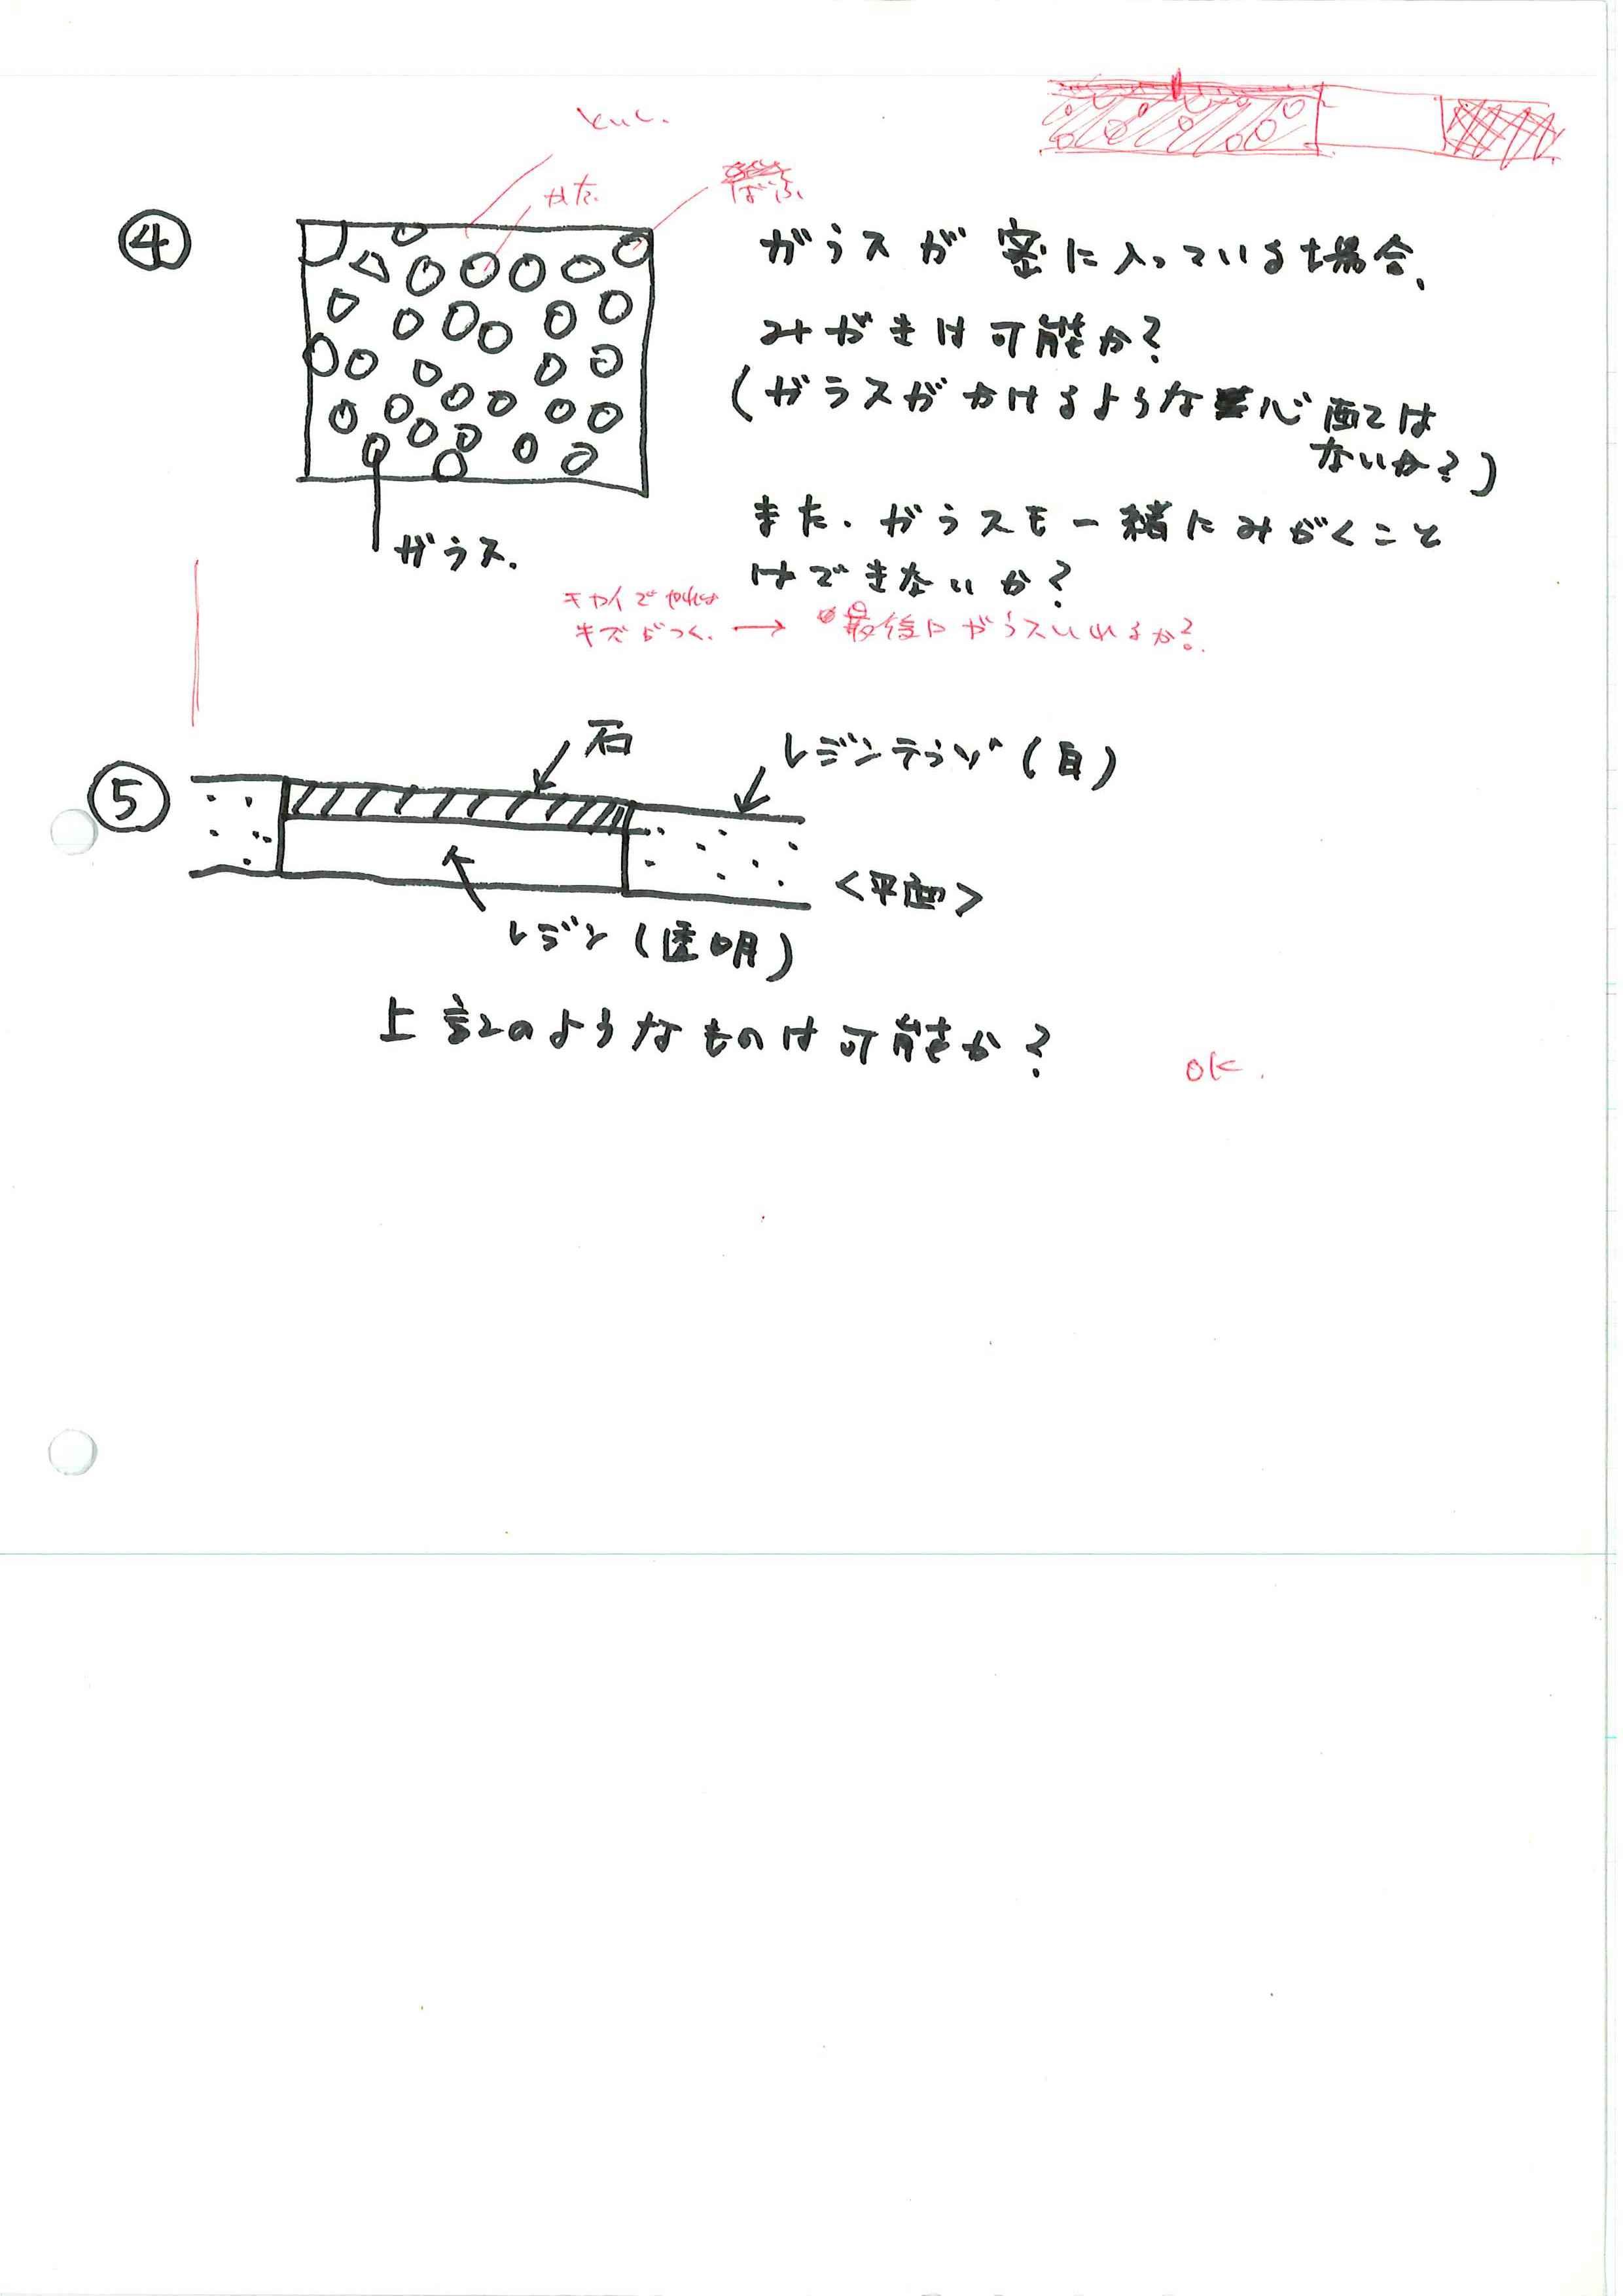 ④
かた.
ばふ
ガラスが密に入っている場合、
みがきは可能か?
(ガラスがかけるような心配は
ないか?)
また、ガラスも一緒にみがくこと
はできないか?
ガラス.
キカイでやれば
キズがつく. → 最後にガラスいれるか?
⑤
石
レジンテラゾ(白)
<平面>
レジン(透明)
上記のようなものは可能か?
OK.